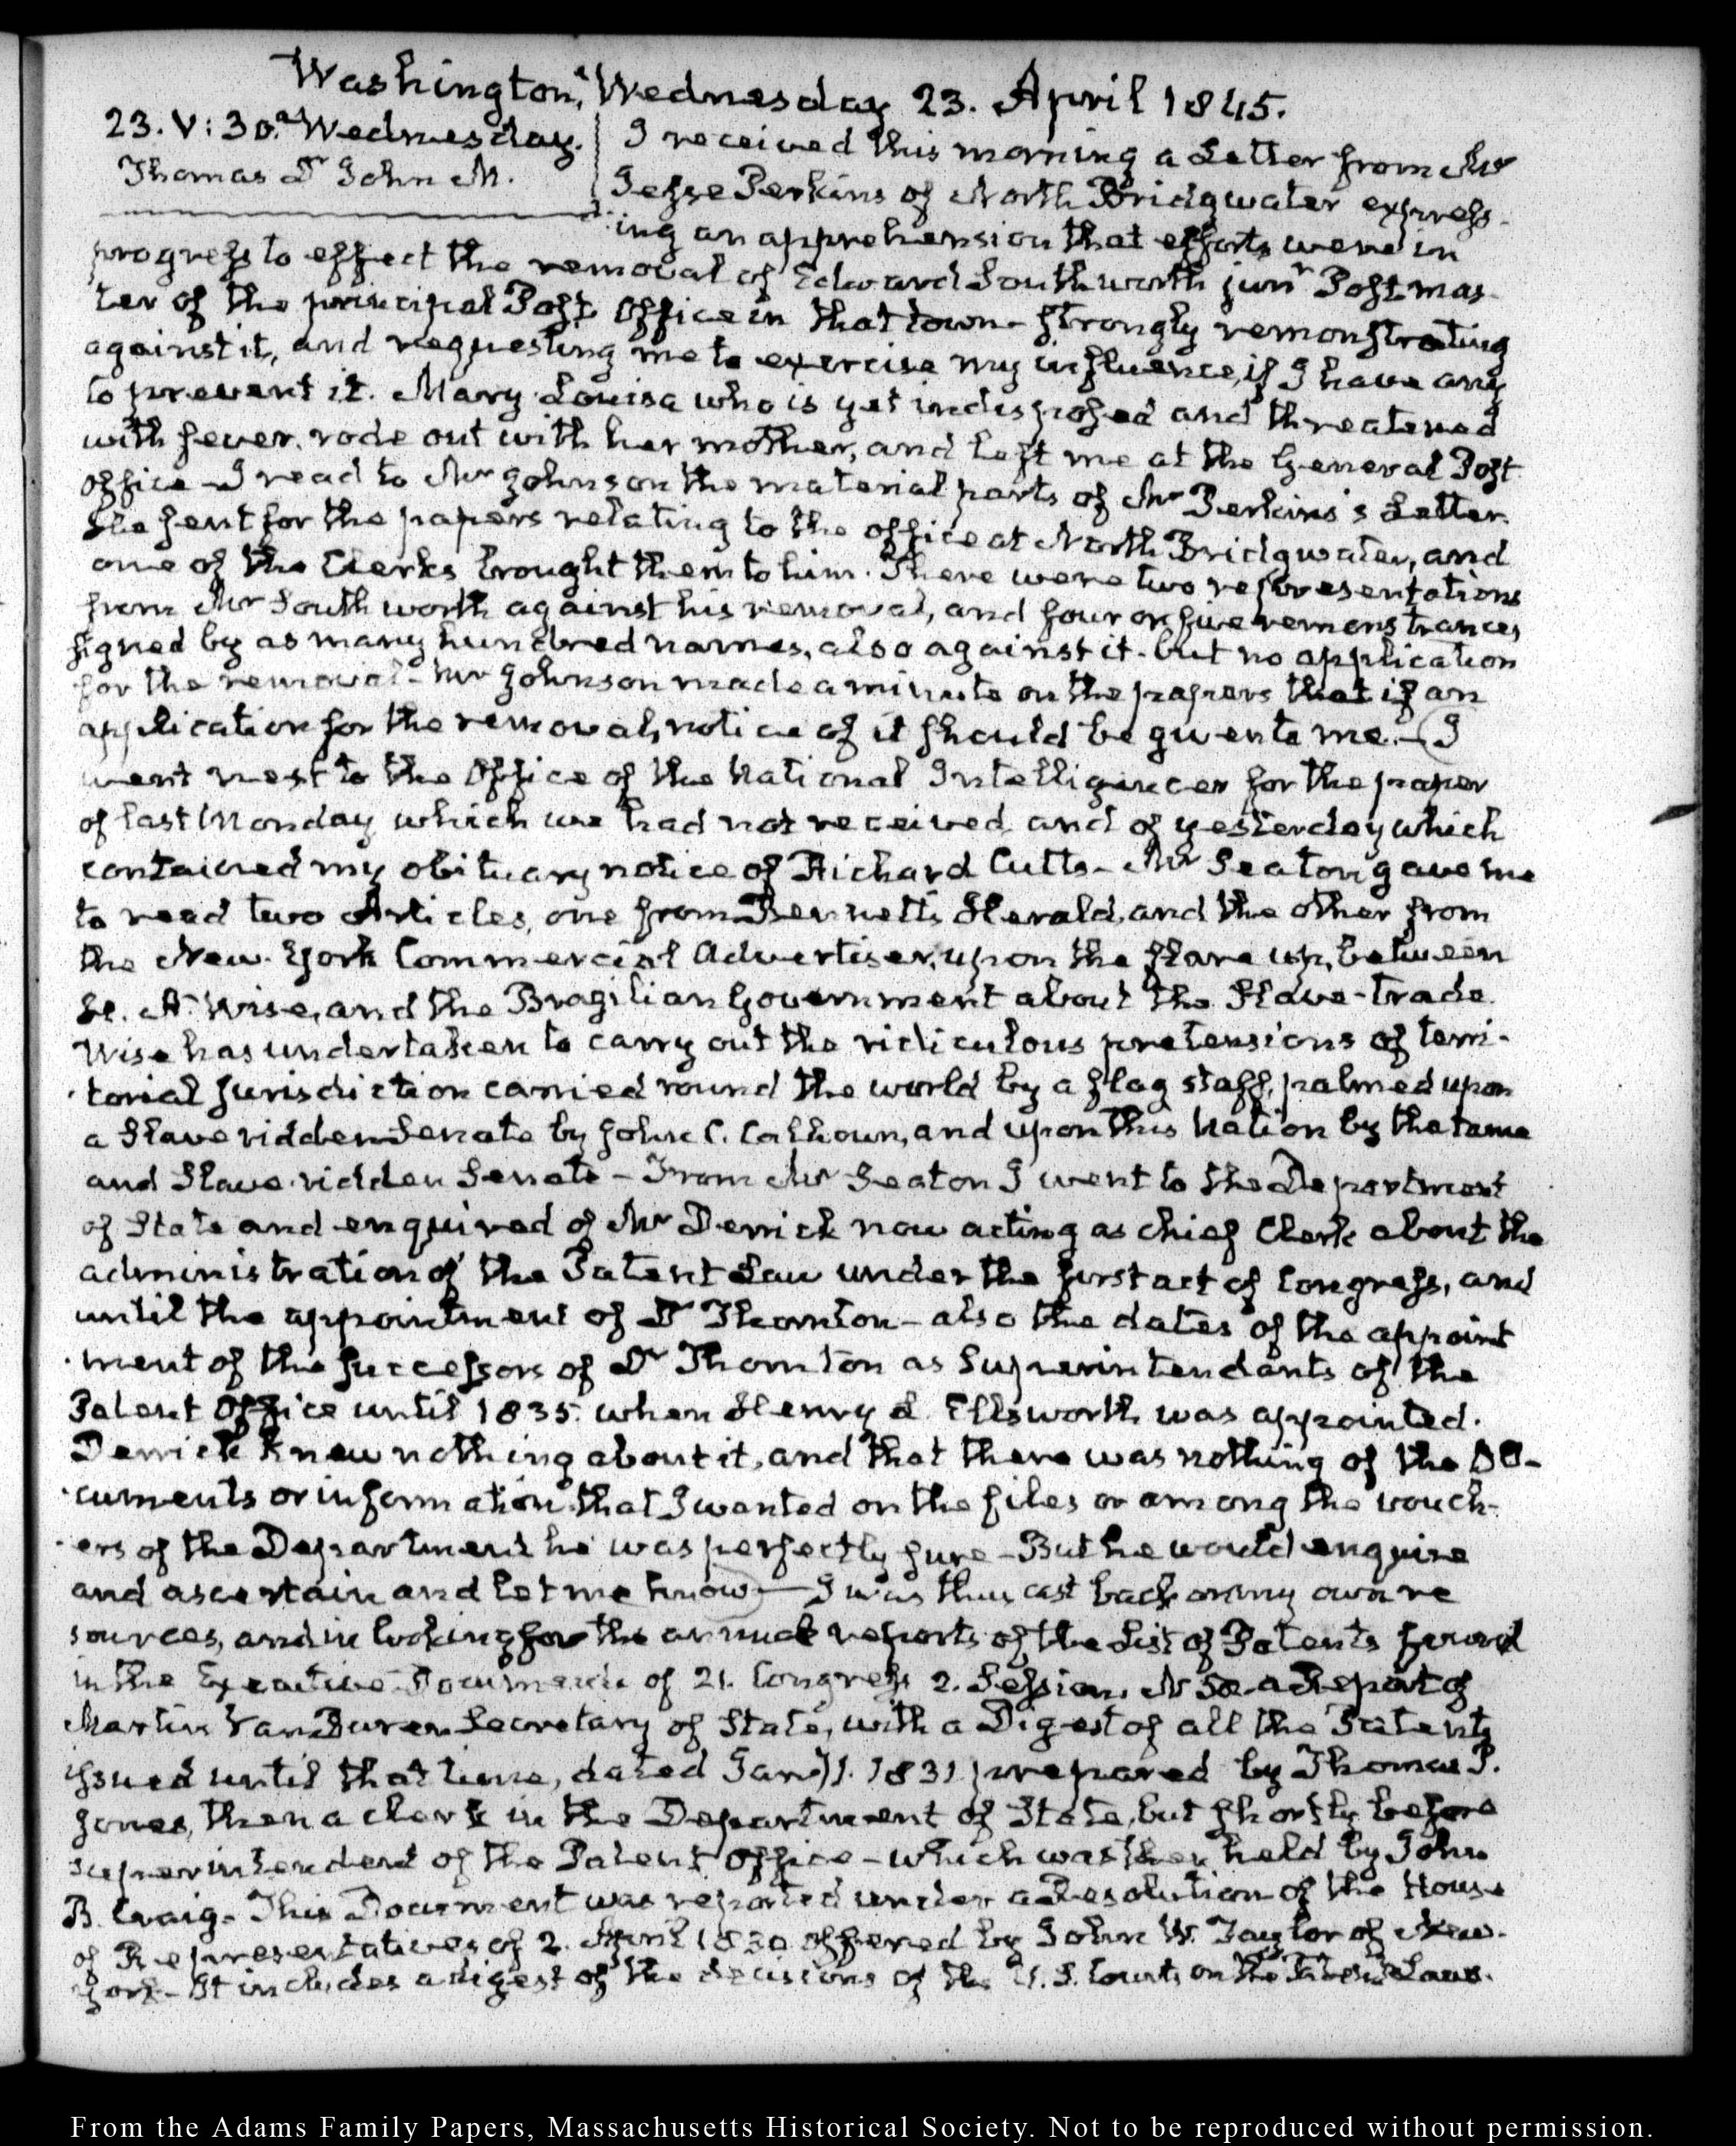 Washington, Wednesday 23. April 1845.
23. V:30. Wednesday.
Thomas Dr John M.
I received this morning a Letter from Mr
Jesse Perkins of North Bridgwater express-
ing an apprehension that efforts were in
progress to effect the removal of Edward Southworth junr Postmas-
ter of the principal Post Office in that town - strongly remonstrating
against it, and requesting me to exercise my influence, if I have any
to prevent it. Mary Louisa who is yet indisposed and threatened
with fever, rode out with her mother, and left me at the General Post
office - I read to Mr Johnson the material parts of Mr Perkins's Letter.
He sent for the papers relating to the office at North Bridgwater, and
one of the Clerks brought them to him. There were two representations
from Mr Southworth against his removal, and four or five remonstrances
signed by as many hundred names, also against it - but no application
for the removal - Mr Johnson made a minute on the papers that if an
application for the removal, notice of it should be given to me. - I
went next to the Office of the National Intelligencer for the paper
of last Monday which we had not received and of yesterday which
contained my obituary notice of Richard Cutts - Mr Seaton gave me
to read two Articles, one from Bennett's Herald, and the other from
the New-York Commercial Advertiser, upon the flare up, between
H. A. Wise, and the Brazilian Government about the Slave-trade.
Wise has undertaken to carry out the ridiculous pretensions of terri-
torial jurisdiction carried round the world by a flag staff, palmed upon
a Slave ridden Senate by John C. Calhoun, and upon this Nation by the tame
and Slave-ridden Senate - From Mr Seaton I went to the Department
of State and enquired of Mr Derrick now acting as chief Clerk about the
administration of the Patent Law under the first act of Congress, and
until the appointment of Dr Thornton - also the dates of the appoint
ment of the successors of Dr Thornton as Superintendants of the
Patent Office until 1835. when Henry L. Ellsworth was appointed.
Derrick knew nothing about it, and that there was nothing of the Do-
cuments or information that I wanted on the files or among the vouch-
ers of the Department he was perfectly sure - But he would enquire
and ascertain and let me know - I was thus cast back on my own re
sources, and in looking for the annual reports of the List of Patents found
in the Executive Documents of 21. Congress 2. Session. N 50 a Report of
Martin Van Buren Secretary of State, with a Digest of all the Patents
issued until that time, dated Jany 1. 1831 prepared by Thomas P.
Jones, then a clerk in the Department of State, but shortly before
superintendent of the Patent Office - which was then held by John
B. Craig - This Document was reported under a Resolution of the House
of Representatives of 2. April 1830 offered by John W. Taylor of New-
York - It includes a digest of the decisions of the U.S. Courts on the Patent Laws.
From the Adams Family Papers, Massachusetts Historical Society. Not to be reproduced without permission.